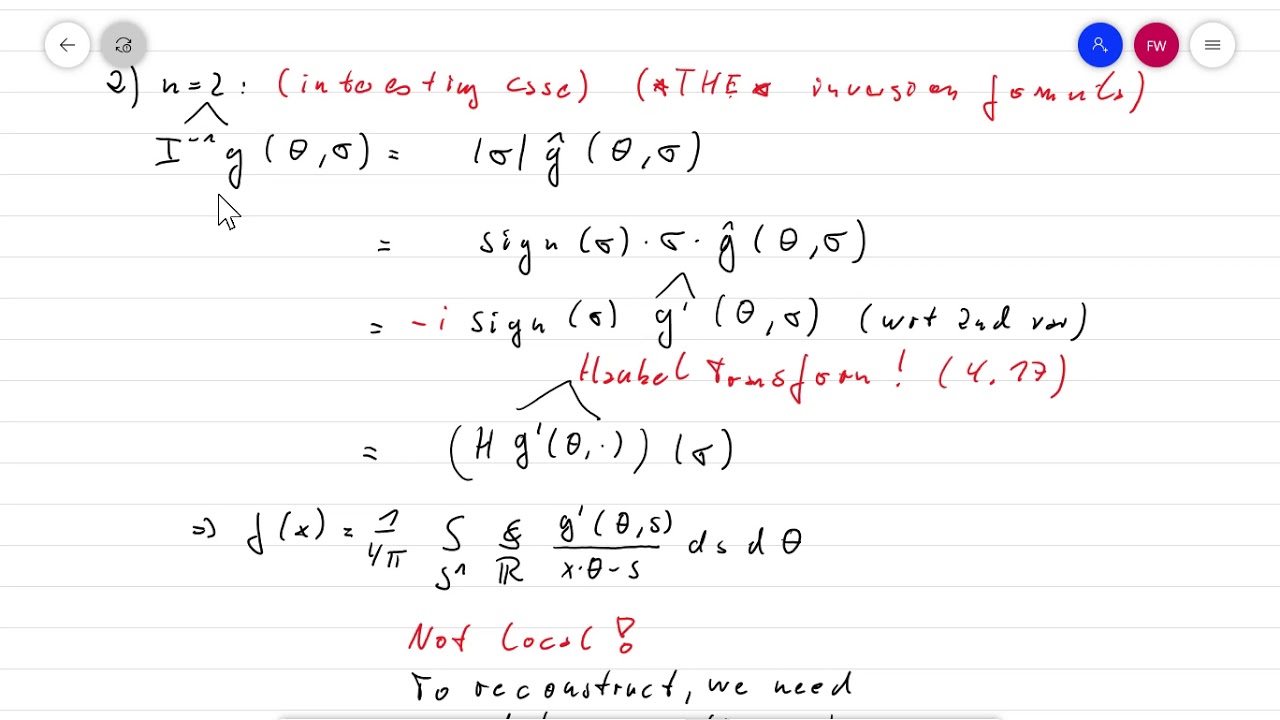 FW
2) n=2: (interesting case) (*THE* inversion formula)
I⁻¹g (θ,σ) = |σ| ĝ (θ,σ)
= sign (σ) · σ · ĝ (θ,σ)
= -i sign (σ) g' (θ,σ) (wrt 2nd var)
Hankel Transform! (4.17)
= (H g'(θ,·)) (σ)
⇒ f(x) = 1/4π ∫_{S¹} ∫_ℝ g'(θ,s)/(x·θ-s) ds dθ
Not local!
To reconstruct, we need